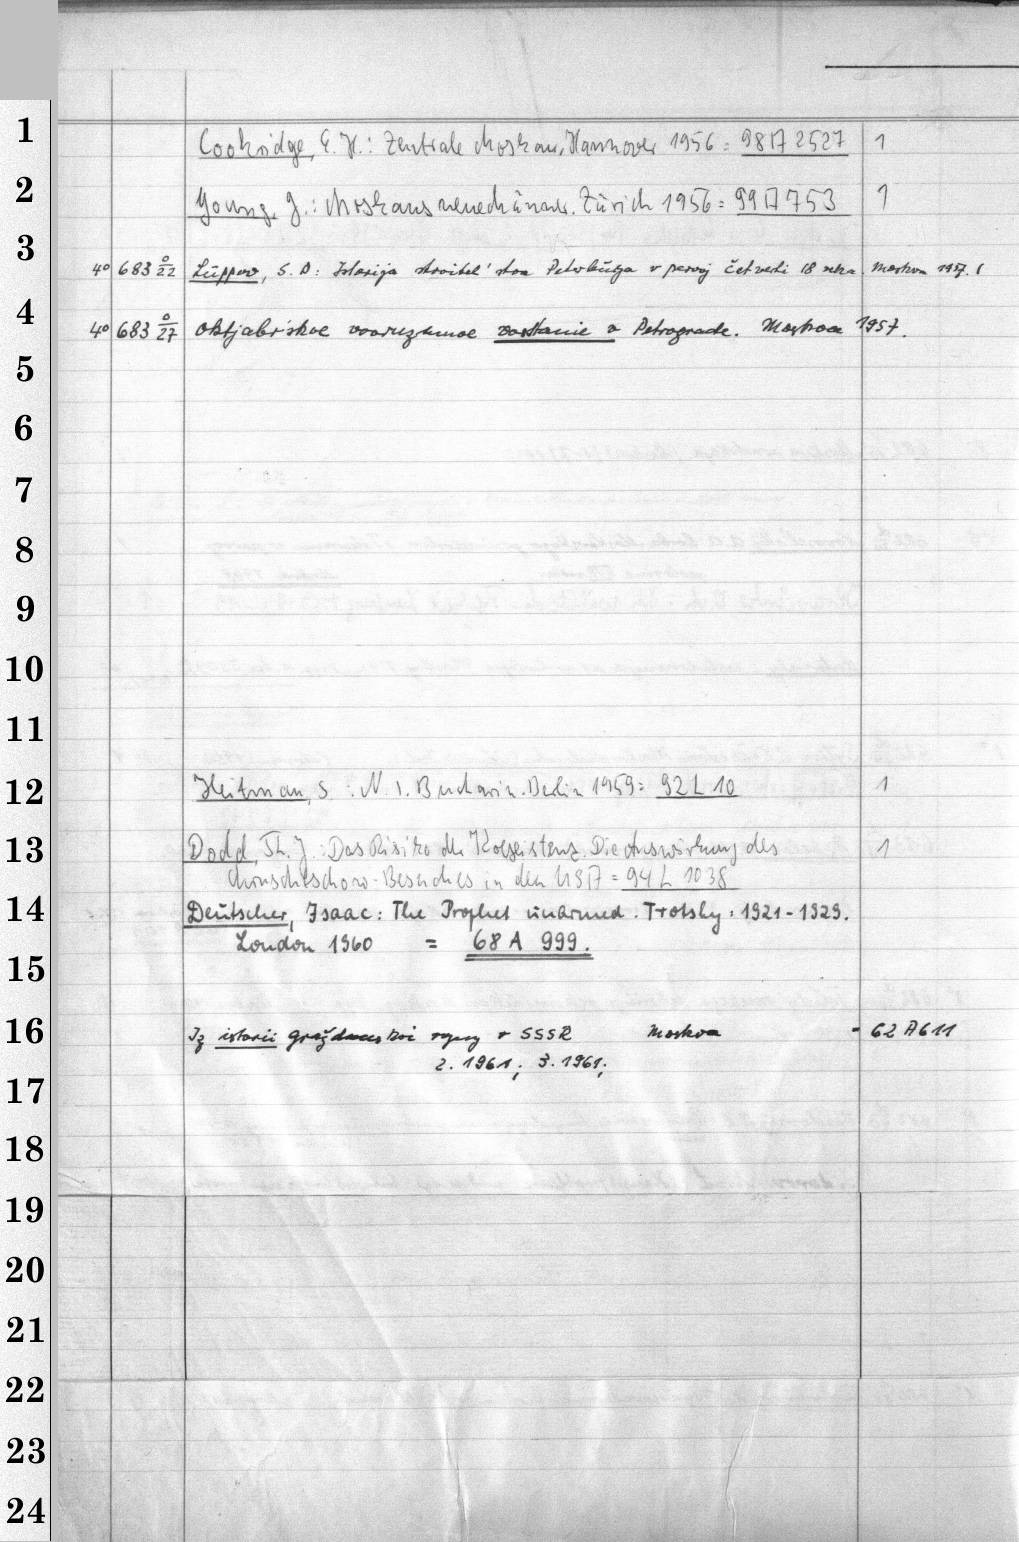 1
Cookridge, E. H.: Zentrale Moskau, Hannover 1956 = 98 A 2527 1
2
Young, G.: Moskaus Zürich 1956 = 99 A 753 1
3
4° 683 O/22 Lüppov, S. P.: Istorija stroitel'stva Peterburga v pervoj četverti 18 veka. Moskva 1957. 1
4
4° 683 O/27 Oktjabr'skoe vooružennoe vosstanie v Petrograde. Moskva 1957.
5
6
7
8
9
10
11
12
Heitman, S.: N. I. Bucharin. Berlin 1959 = 92 L 10 1
13
Dodd, Th. J.: Das Risiko der Koexistenz. Die Auswirkung des 1
Chruschtschow-Besuches in den USA = 94 L 1038
14
Deutscher, Isaac: The Prophet unarmed. Trotsky: 1921-1929.
London 1960 = 68 A 999.
15
16
Iz istorii graždanskoi vojny v SSSR Moskva = 62 A 611
2. 1961; 3. 1961;
17
18
19
20
21
22
23
24